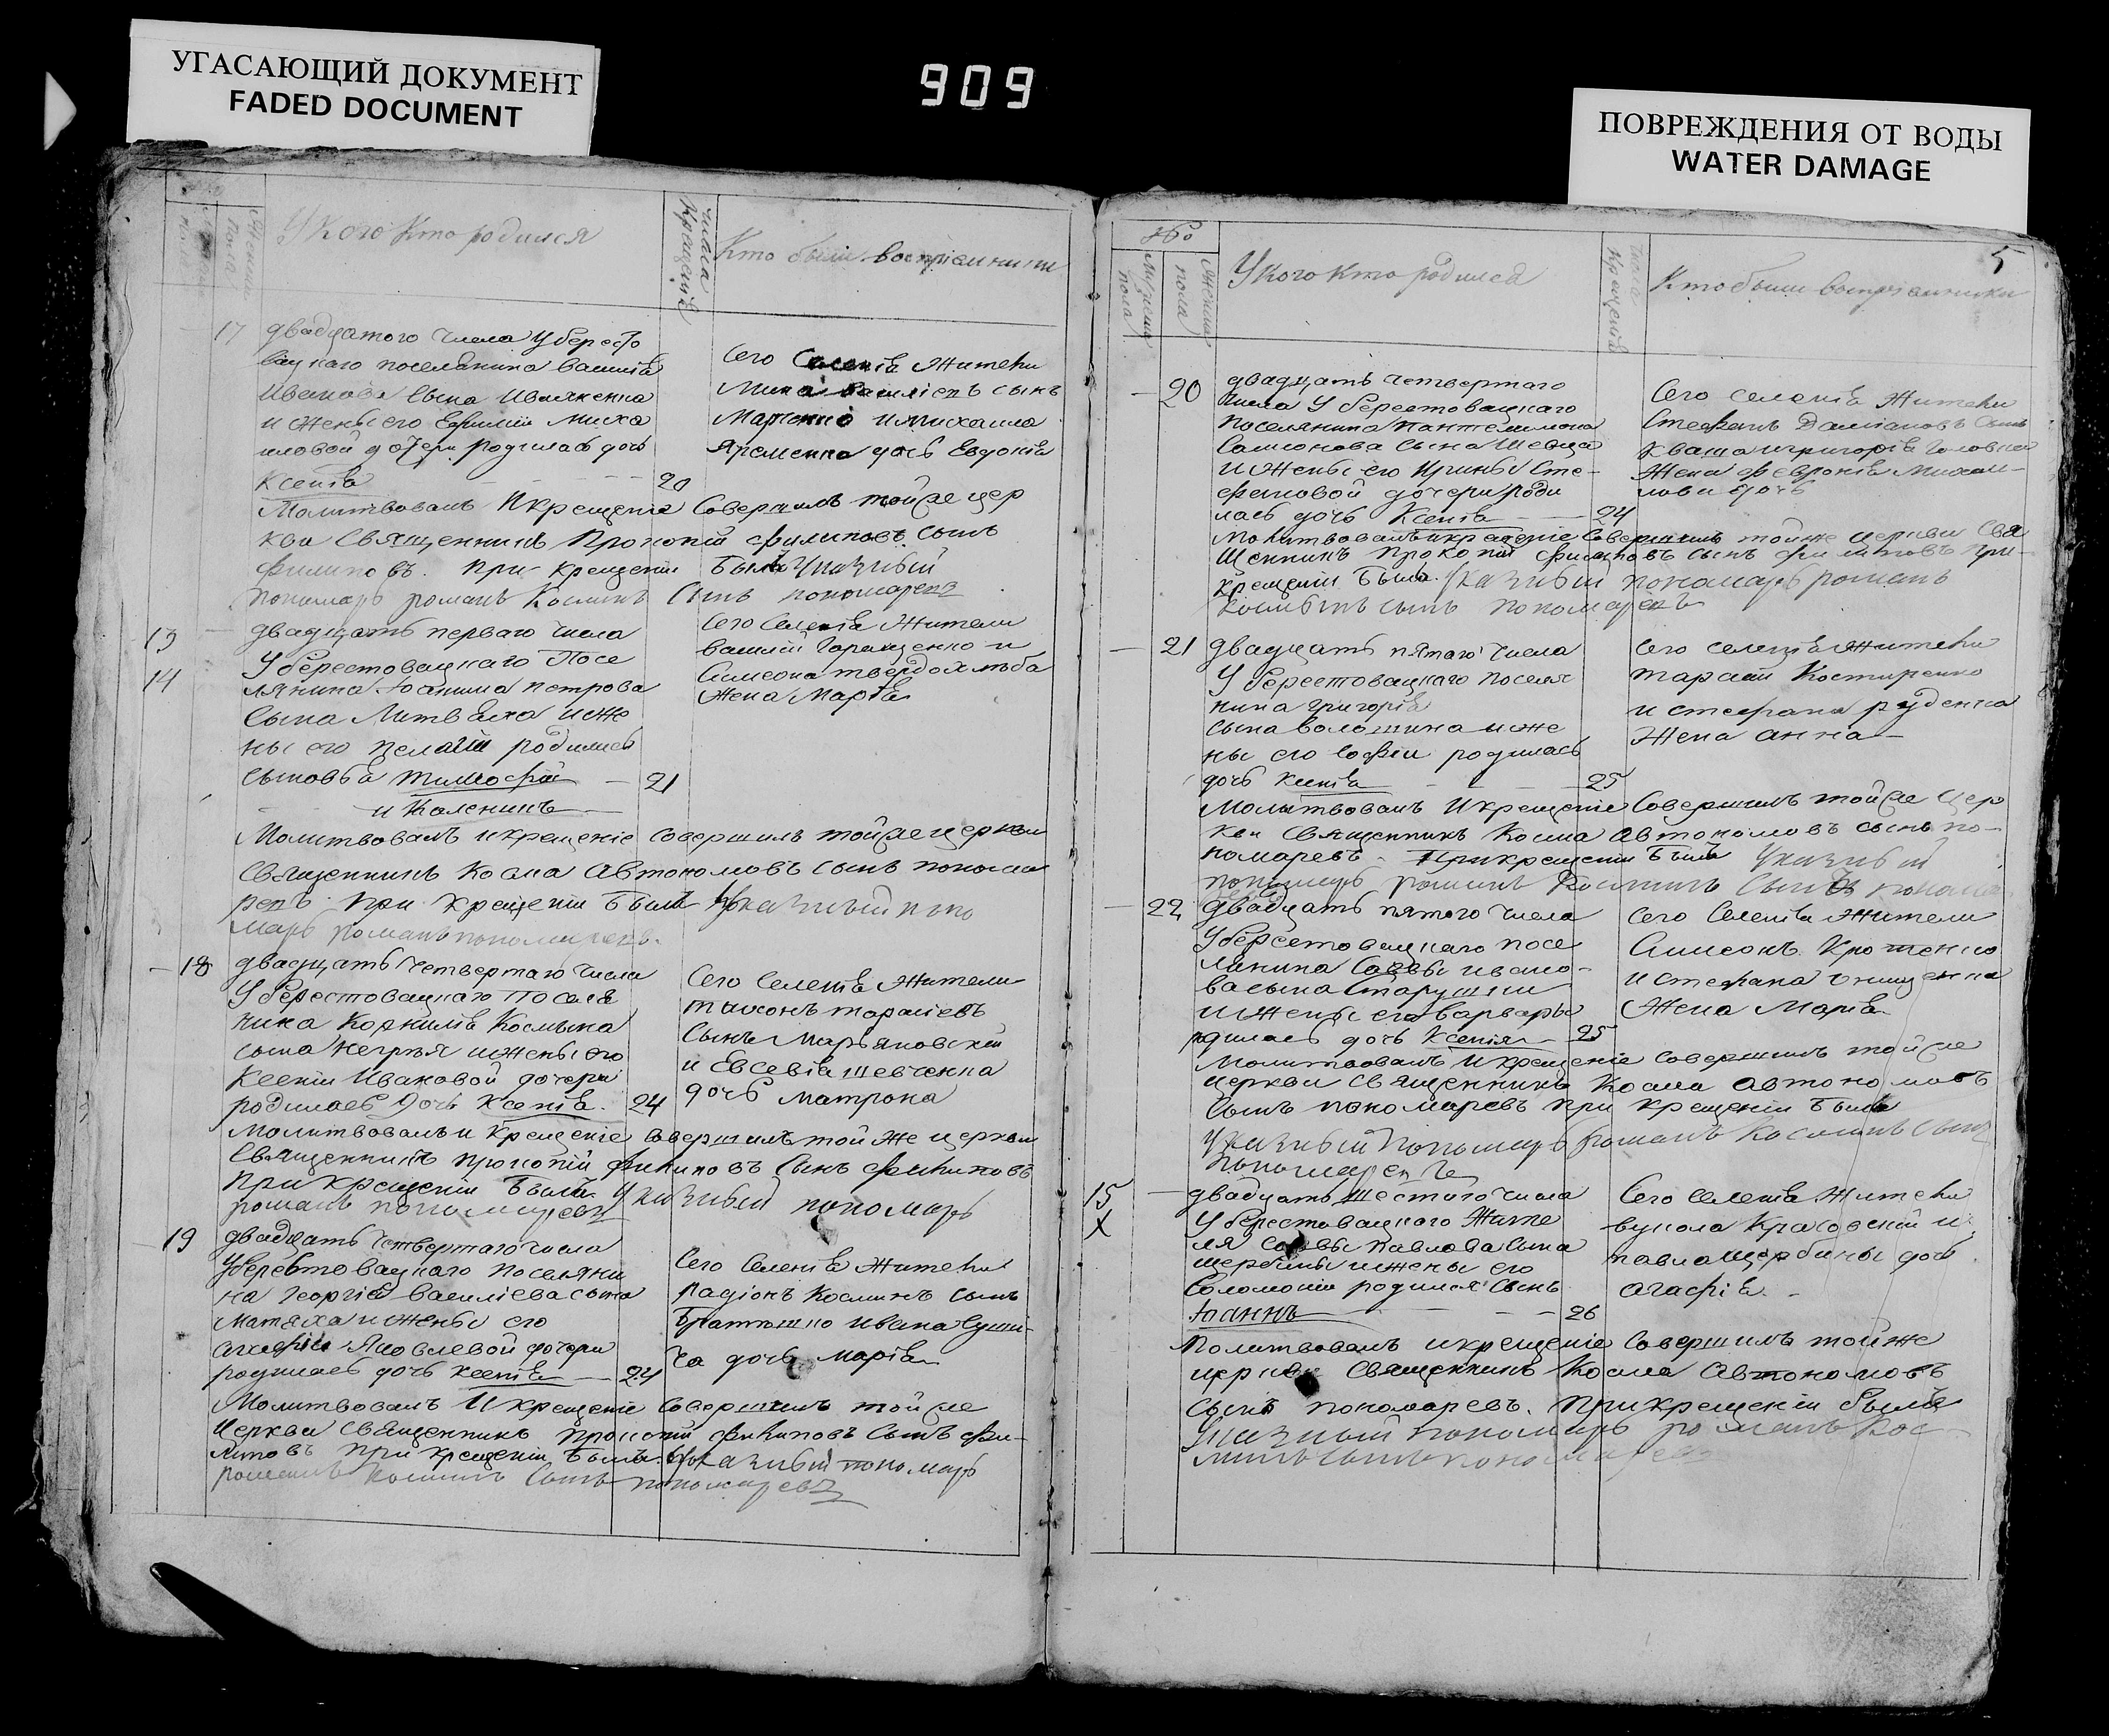 УГАСАЮЩИЙ ДОКУМЕНТ
FADED DOCUMENT
909
ПОВРЕЖДЕНИЯ ОТ ВОДЫ
WATER DAMAGE
Женска пола
У кого кто родился
числа крещенія
Кто были воспріемники
17
двадцатого числа У бересто
вацкаго поселянина василія
Иванова сына Иващенка
и жены его Ефиміи Миха
иловой дочери родилась дочь
Ксенія
20
Сего Селенія Жители
Марченко и михаила
Яременка дочь Евдокія
Молитвовалъ И крещеніе Совершилъ той же цер
кви Священникъ Прокопій филиповъ сынъ
филиповъ. при крещеніи Былъ Указный
пономарь романъ Косминъ Сынъ пономаревъ
13
14
двадцать перваго числа
У берестовацкаго Посе
лянина Іоакима петрова
Сына Литвяка и же
ны его пелагіи родились
сыновья тимофей
21
и Каленикъ
Сего Селенія Жители
василій Геращенко и
Симеона твердохлѣба
Жена Марія
Молитвовалъ и крещеніе совершилъ той же церкви
Священникъ Косма Автономовъ сынъ понома
ревъ при крещеніи Былъ Указный поно
марь романъ пономаревъ.
18
двадцать Четвертаго числа
У берестовацкаго Поселя
нина Корнилія Космина
сына Негрѣя и жены его
Ксеніи Ивановой дочери
родилась дочь Ксенія.
24
Сего Селенія Жители
тихонъ тарасіевъ
Сынъ Марьяновскій
и Евсевія шевченка
дочь матрона
Молитвовалъ и крещеніе совершилъ той же церкви
Священникъ прокопій филиповъ Сынъ филиповъ
При крещеніи Былъ Указный пономарь
романъ пономаревъ
19
двадцать Четвертаго числа
У берестовацкаго поселяни
на Георгія василіева сына
матяха и жены его
агафіи Яковлевой дочери
родилась дочь Ксенія
24
Сего Селенія Жители
Радіонъ Косминъ сынъ
Ивана Суши-
ча дочь марія
Молитвовалъ И крещеніе Совершилъ той же
Церкви священникъ прокопій филиповъ Сынъ фи-
липовъ при крещеніи Былъ Указный пономарь
романъ Косминъ Сынъ пономаревъ
5
Мужеска пола
Женска пола
У кого кто родился
числа крещенія
Кто были воспріемники
20
двадцать четвертаго
числа У берестовацкаго
поселянина пантелимона
Самсонова Сына Шевца
И Жены его Ирины Сте-
фановой дочери роди
лась дочь Ксенія
24
Сего селенія Жители
Стефанъ Даміановъ сынъ
Кваша и григорія Головка
Жена февронія михаи-
лова дочь
Молитвовалъ и крещеніе Совершилъ той же церкви Свя
щенникъ прокопій филиповъ сынъ филиповъ При-
крещеніи Былъ. Указный пономарь романъ
Косминъ сынъ пономаревъ
21
двадцать пятаго числа
У берестовацкаго поселя
нина григорія
сына волошина и же
ны его Софіи родилась
дочь Ксенія
25
Сего селенія Жители
тарасій Костиренко
и стефана руденка
Жена анна
Молитвовалъ И крещеніе Совершилъ той же цер
кви Священникъ Косма Автономовъ сынъ по-
номаревъ. При крещеніи Былъ Указный
пономарь романъ Косминъ Сынъ
22
двадцать пятого числа
У берестовацкаго посе
лянина Саввы ивано-
ва сына Старушки
и Жены его варвары
родилась дочь Ксенія
25
Сего Селенія Жители
Симеонъ Кротенко
и стефана Онищенка
Жена Марія
Молитвовалъ И крещеніе совершилъ той же
церкви священникъ Косма Автономовъ
Сынъ пономаревъ при крещеніи Былъ
Указный пономарь романъ Косминъ Сынъ
пономаревъ
15
X
двадцать шестого числа
У берестовацкого Жите
ля Саввы павлова сына
щербины и жены его
Соломоніи родился Сынъ
Іоаннъ
26
Сего селенія Жители
вукола Красовскій и
павла щербины дочь
агафія.
Молитвовалъ и крещеніе Совершилъ той же
церкви Священникъ Косма Автономовъ
сынъ пономаревъ. При крещеніи былъ
Указный пономарь романъ Кос
минъ сынъ пономаревъ